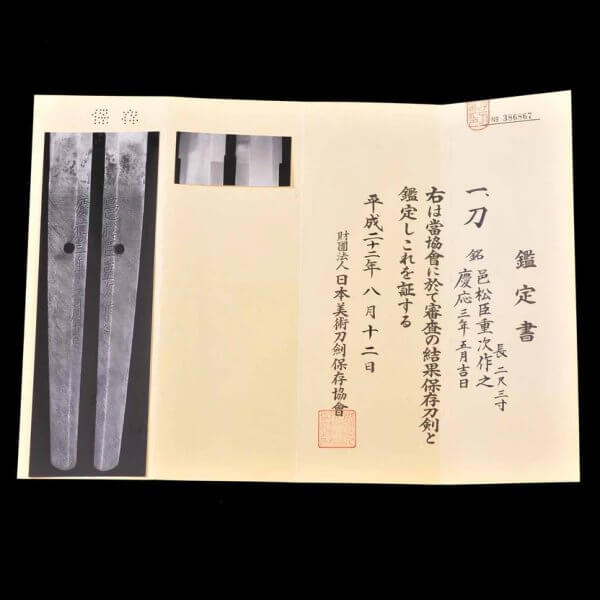 No 386867
鑑定書
一、刀 銘 邑松臣重次作之
慶応三年五月吉日
長 二尺三寸
右は當協會に於て審査の結果保存刀剣と
鑑定しこれを証する
平成二十二年 八月十二日
財團法人 日本美術刀剣保存協會
保存